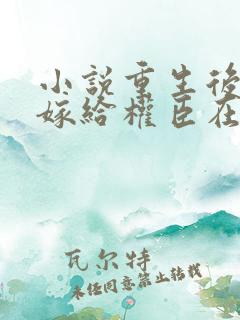 小說重生後
嫁給權臣在
瓦尔特
未经同意禁止转载